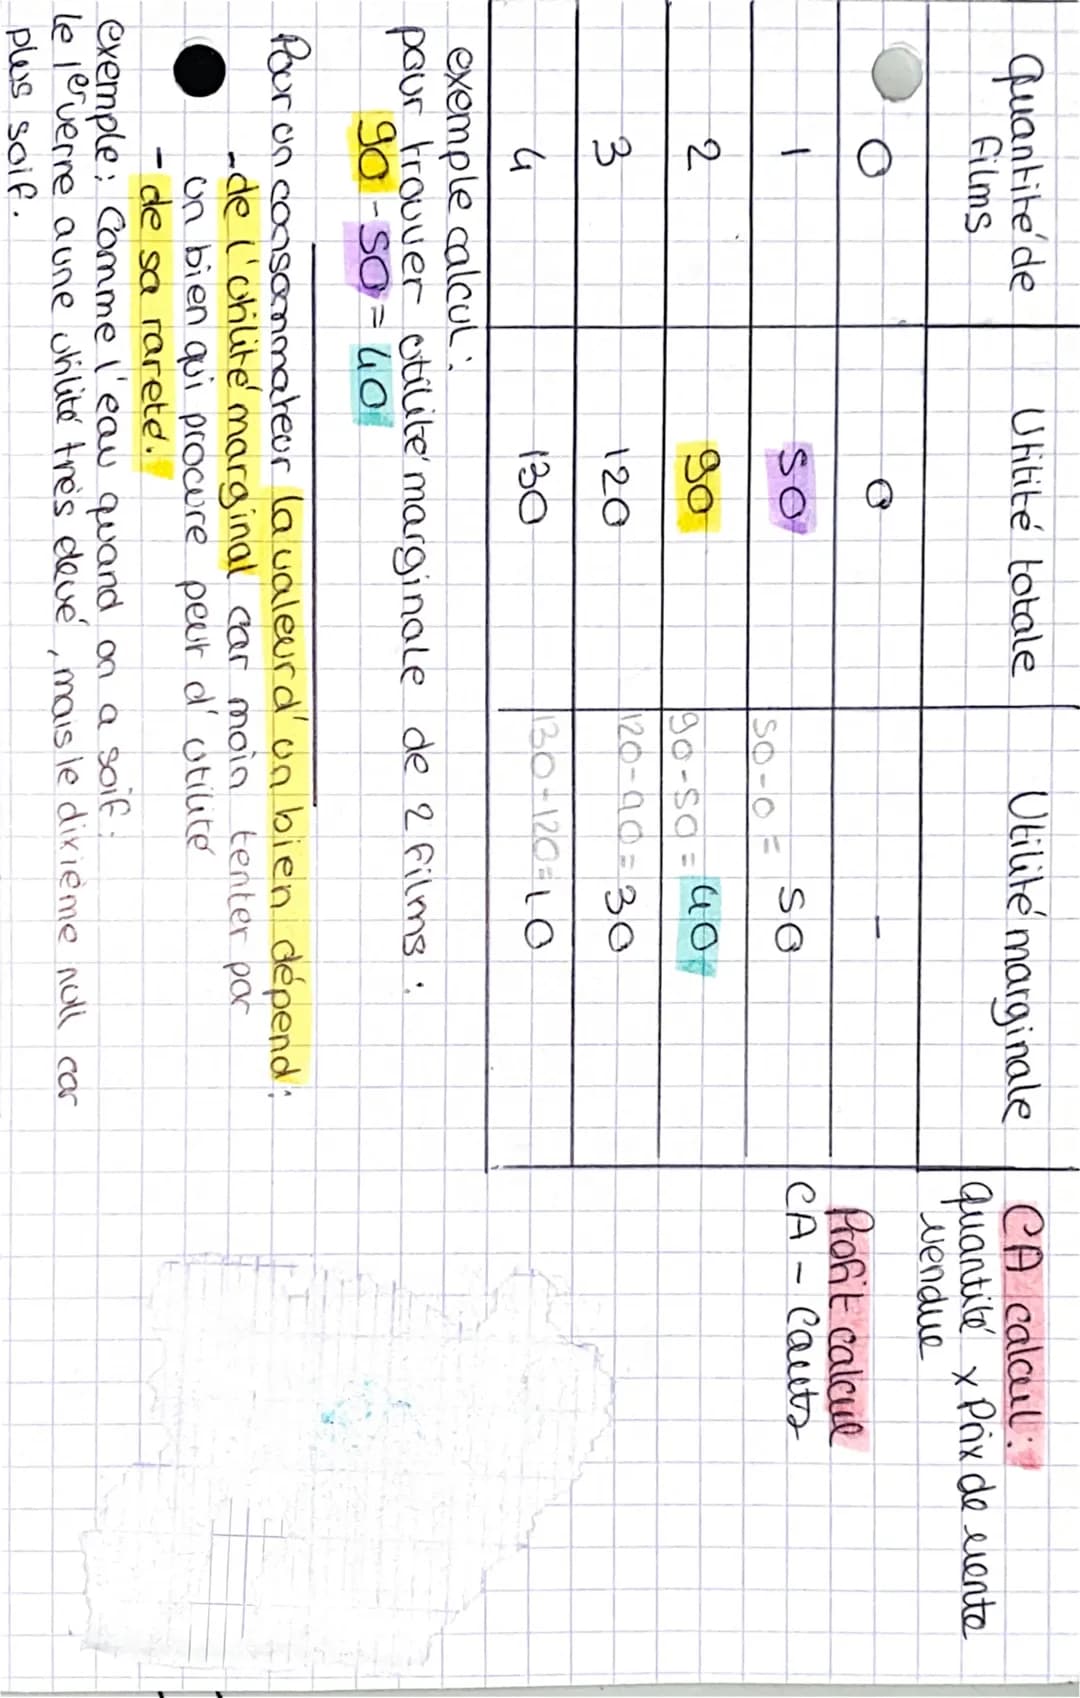 Quantité de films | Utilité totale | Utilité marginale
0 | 0 | -
1 | 50 | 50-0 = 50
2 | 90 | 90-50 = 40
3 | 120 | 120-90 = 30
4 | 130 | 130-120=10
CA calcul :
Quantité x Prix de vente
vendue
Profit calcul
CA - Couts
exemple calcul :
pour trouver utilité marginale de 2 films :
90 - 50 = 40
Pour un consommateur la valeur d'un bien dépend :
- de l'utilité marginal car moin tenter par
un bien qui procure peut d'utilité
- de sa rareté.
exemple : Comme l'eau quand on a soif :
le 1er verre a une utilité très élevé, mais le dixième null car
plus soif.